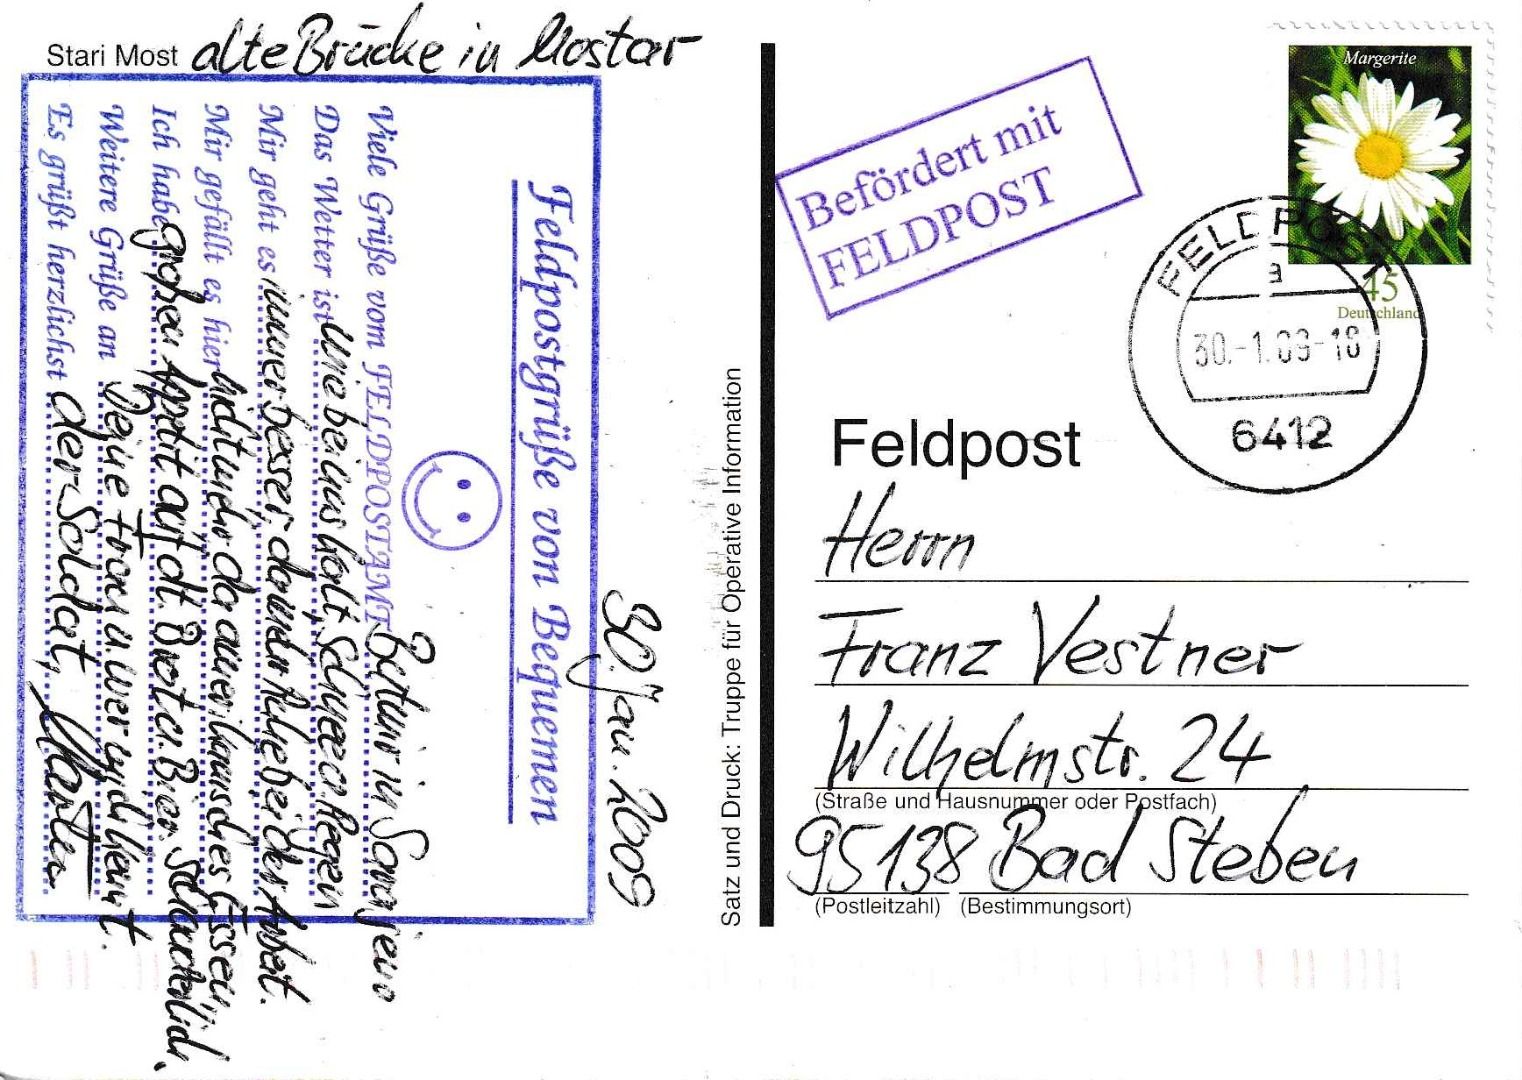 Stari Most alte Brücke in Mostar
Feldpostgrüße von Bequemen
Viele Grüße vom FELDPOSTAMT Butmir in Sarajevo
Das Wetter ist wie bei uns kalt, Schnee u. Regen
Mir geht es immer besser, dank der Ruhe bei der Arbeit.
Mir gefällt es hier nicht mehr da amerikanisches Essen,
Ich habe großen Appetit auf dt. Brot u. Bier. Schauderlich,
Weitere Grüße an Deine Frau u. wer mich kennt.
Es grüßt herzlichst der Soldat,
30. Jan. 2009
Satz und Druck: Truppe für Operative Information
Befördert mit
FELDPOST
Margerite
45
Deutschland
FELDPOST
a
30.-1.09-18
6412
Feldpost
Herrn
Franz Vestner
Wilhelmstr. 24
(Straße und Hausnummer oder Postfach)
95138 Bad Steben
(Postleitzahl) (Bestimmungsort)